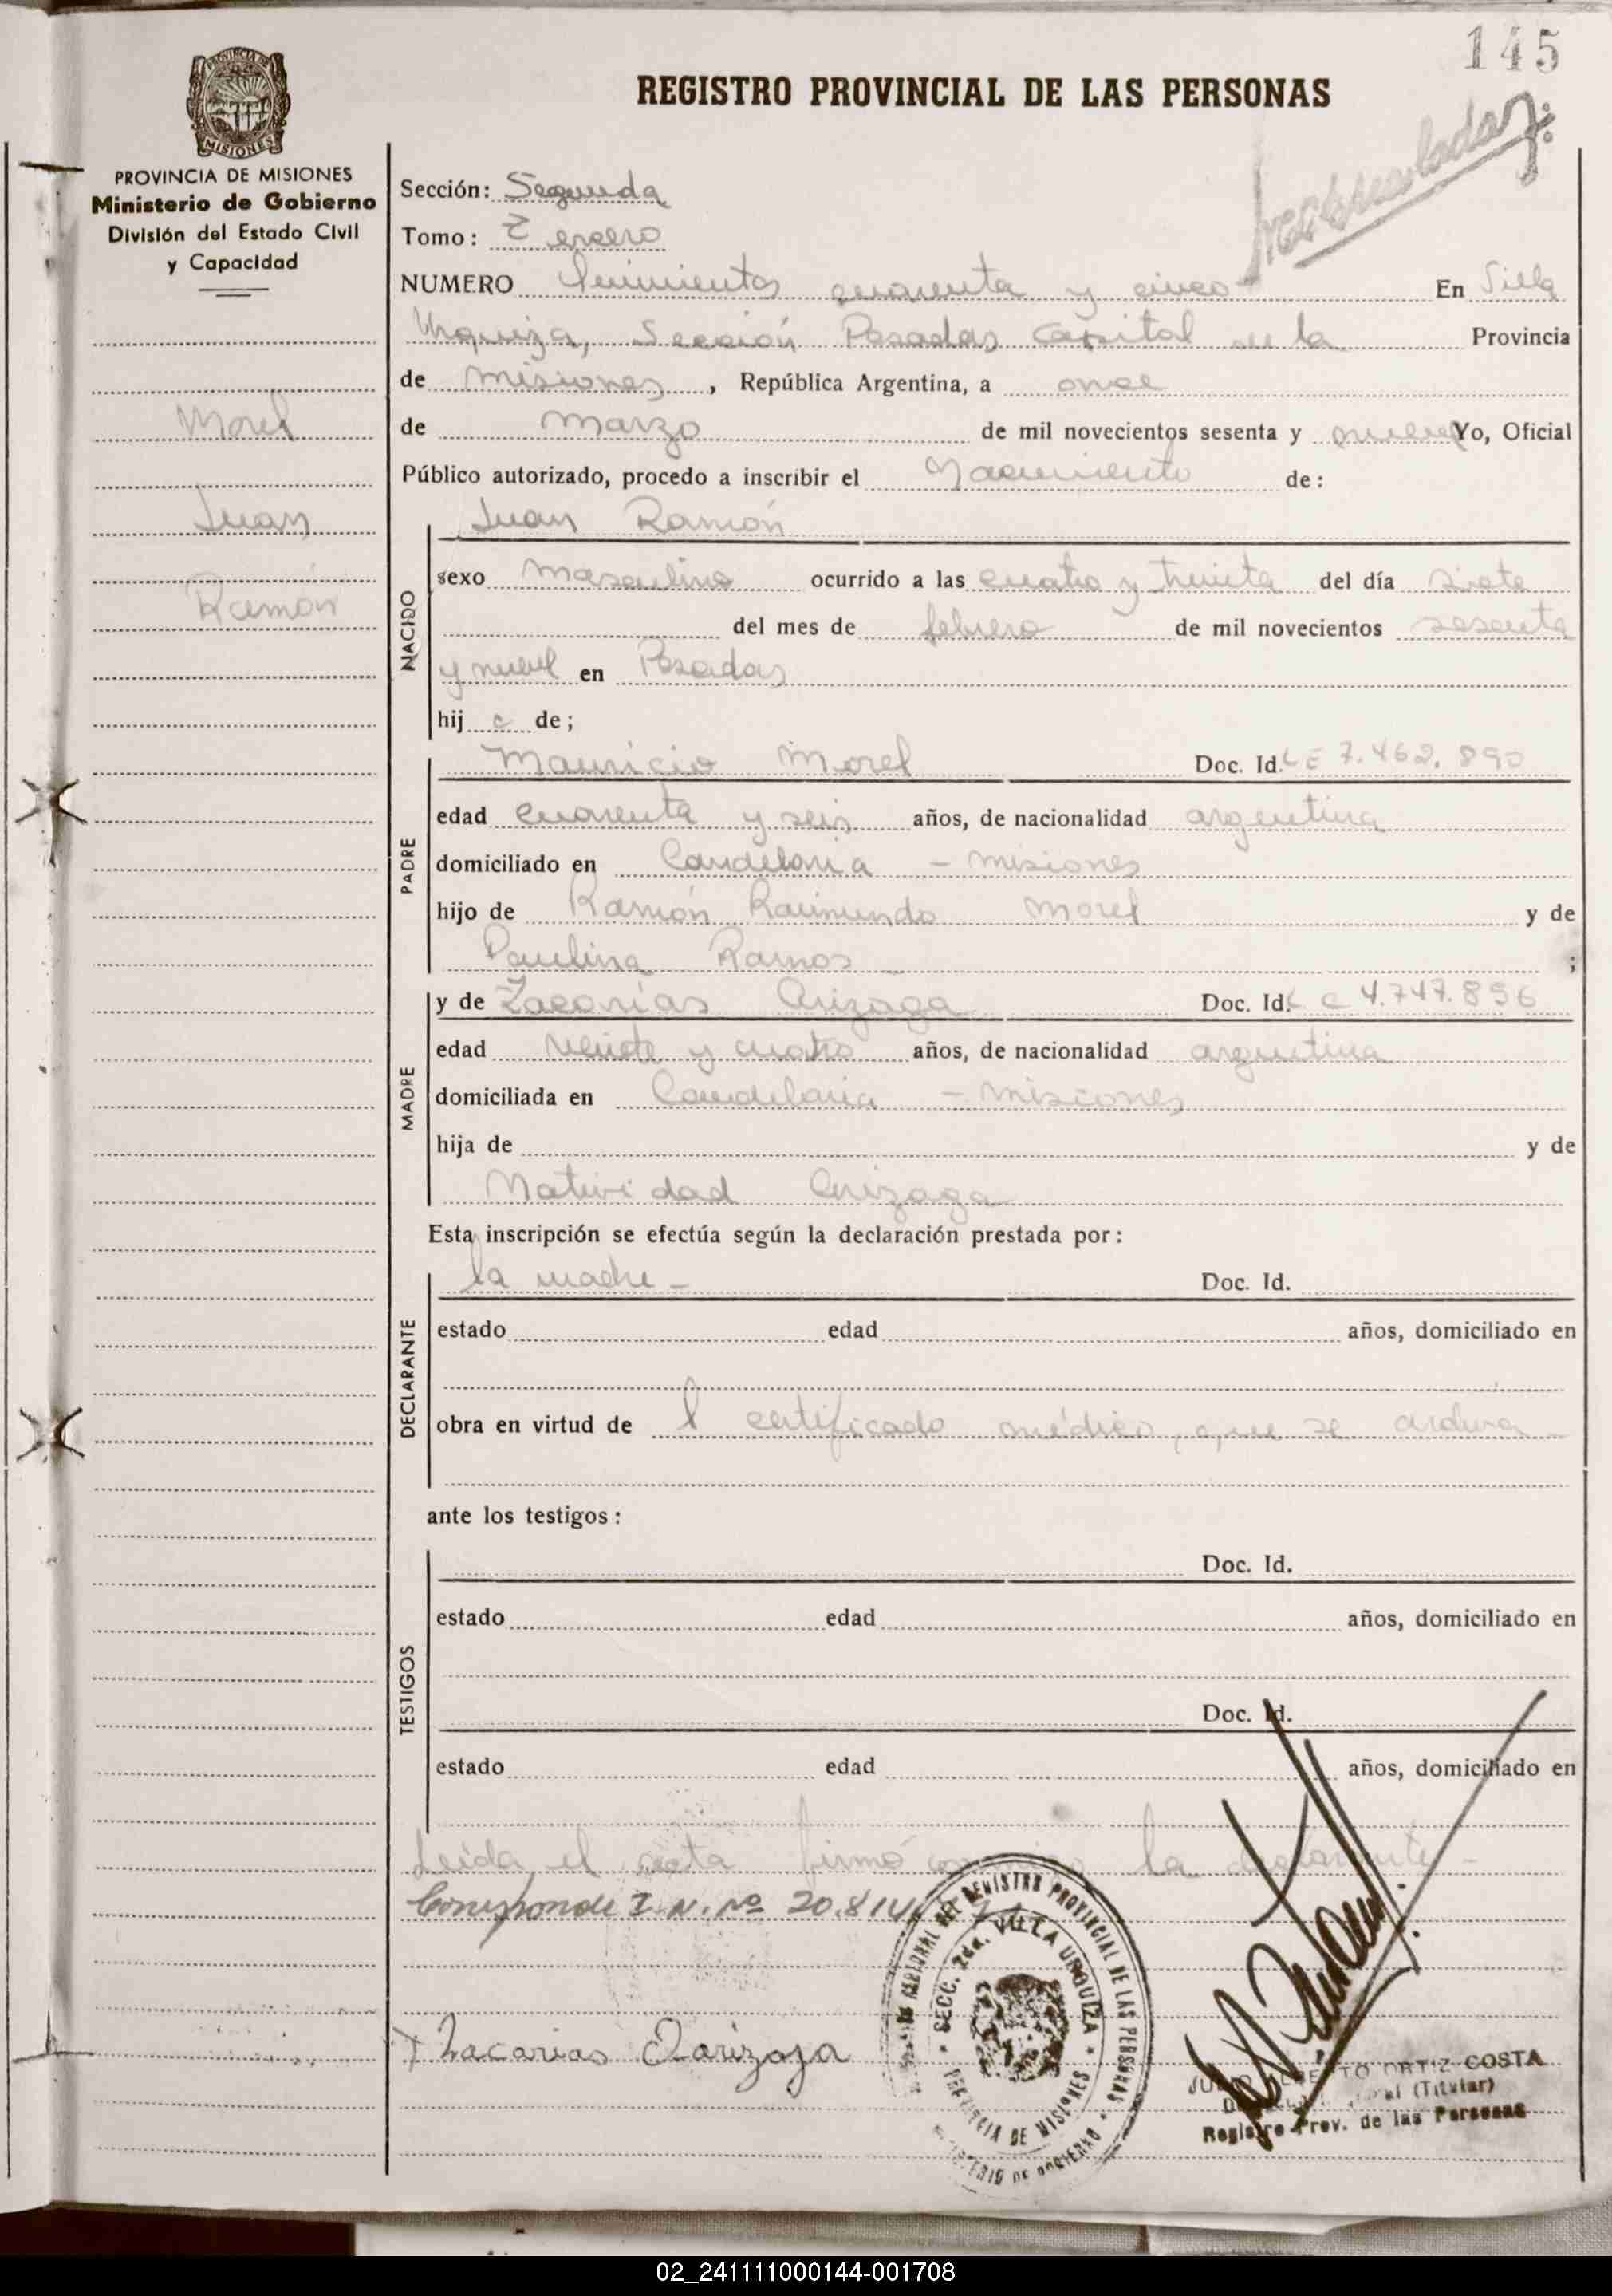 145
REGISTRO PROVINCIAL DE LAS PERSONAS
PROVINCIA DE MISIONES
Ministerio de Gobierno
División del Estado Civil
y Capacidad
Morel
Juan
Ramón
Sección: Segunda
Tomo: Tercero
NUMERO Quinientos cuarenta y cinco En Villa
Urquiza, Sección Posadas Capital de la Provincia
de Misiones, República Argentina, a once
de marzo de mil novecientos sesenta y nueve Yo, Oficial
Público autorizado, procedo a inscribir el Nacimiento de:
NACIDO
Juan Ramón
sexo masculino ocurrido a las cuatro y treinta del día siete
del mes de febrero de mil novecientos sesenta
y nueve en Posadas
hij o de;
PADRE
Mauricio Morel Doc. Id. LE 7.462.890
edad cuarenta y seis años, de nacionalidad argentina
domiciliado en Candelaria - Misiones
hijo de Ramón Raimundo Morel y de
Paulina Ramos ;
MADRE
y de Zacarías Arizaga Doc. Id. L C 4.747.896
edad veinte y cuatro años, de nacionalidad argentina
domiciliada en Candelaria - Misiones
hija de y de
Natividad Arizaga
Esta inscripción se efectúa según la declaración prestada por:
DECLARANTE
la madre - Doc. Id.
estado edad años, domiciliado en
obra en virtud de l certificado médico, que se archiva -
ante los testigos:
TESTIGOS
Doc. Id.
estado edad años, domiciliado en
Doc. Id.
estado edad años, domiciliado en
Leída el acta firmó conmigo la declarante -
Corresponde I. N. Nº 20.814
Zacarias Oarizaga
REGISTRO PROVINCIAL DE LAS PERSONAS
SECC. 2da. VILLA URQUIZA
PROVINCIA DE MISIONES
MINISTERIO DE GOBIERNO
ORTIZ COSTA
(Titular)
Registro Prov. de las Personas
02_241111000144-001708